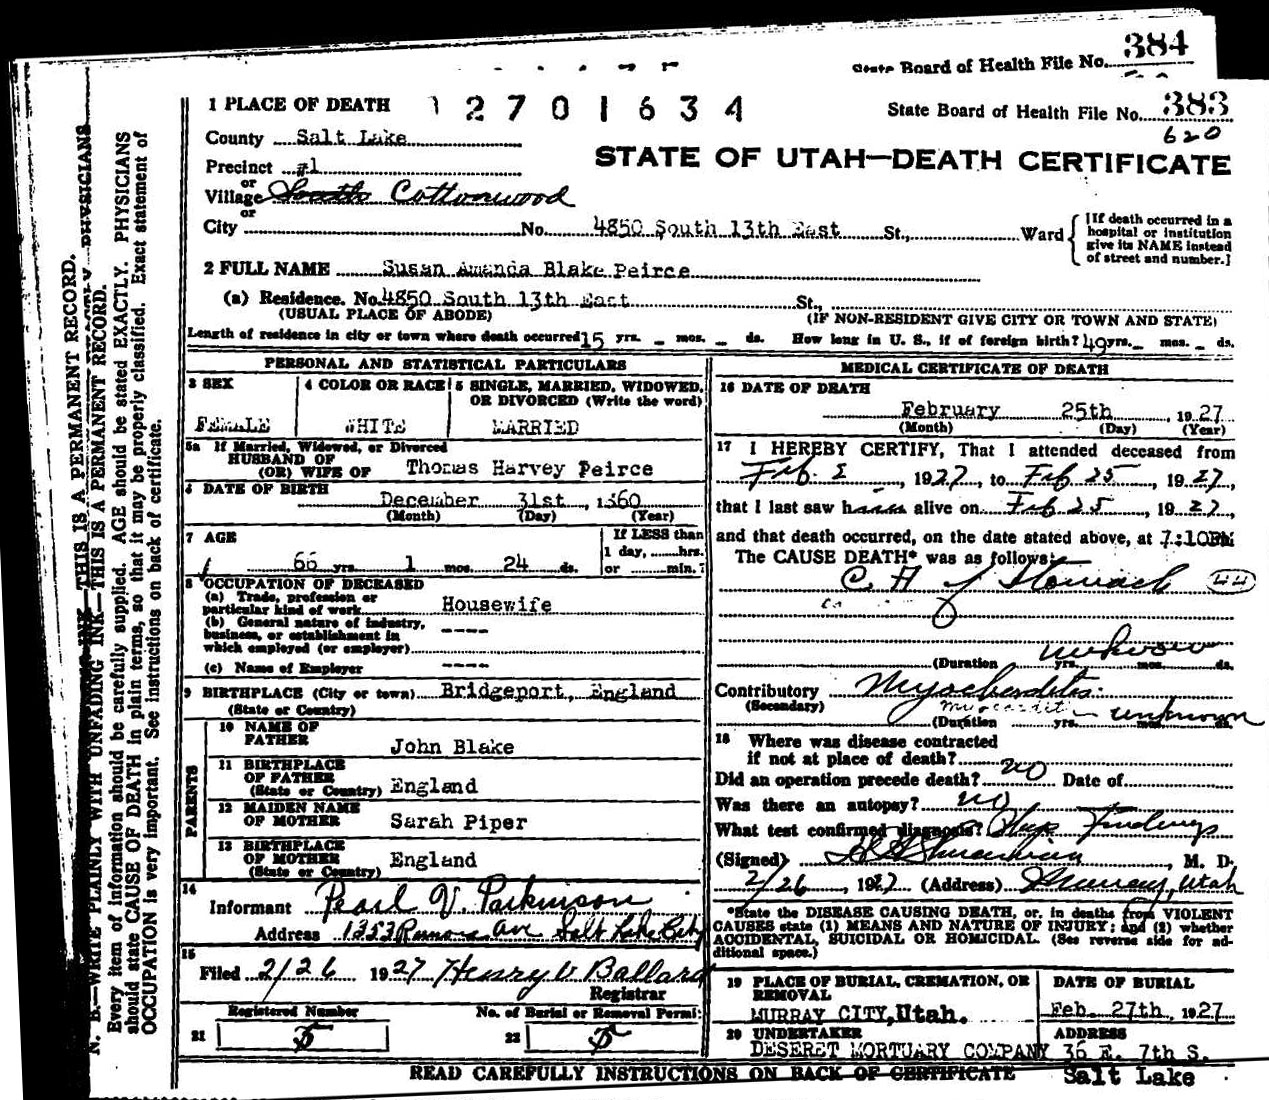 384
State Board of Health File No.
1 PLACE OF DEATH 12701634 State Board of Health File No. 383
620
County Salt Lake
STATE OF UTAH—DEATH CERTIFICATE
Precinct #1
or
Village South Cottonwood
or
City No. 4850 South 13th East St., Ward
[If death occurred in a
hospital or institution
give its NAME instead
of street and number.]
2 FULL NAME Susan Amanda Blake Peirce
(a) Residence. No. 4850 South 13th East St.,
(USUAL PLACE OF ABODE) (IF NON-RESIDENT GIVE CITY OR TOWN AND STATE)
Length of residence in city or town where death occurred 15 yrs. – mos. – ds. How long in U. S., if of foreign birth? 49 yrs. – mos. – ds.
PERSONAL AND STATISTICAL PARTICULARS
3 SEX
FEMALE
4 COLOR OR RACE
WHITE
5 SINGLE, MARRIED, WIDOWED,
OR DIVORCED (Write the word)
MARRIED
5a If Married, Widowed, or Divorced
HUSBAND OF
(OR) WIFE OF Thomas Harvey Peirce
6 DATE OF BIRTH
December 31st, 1860
(Month) (Day) (Year)
7 AGE
66 yrs. 1 mos. 24 ds.
If LESS than
1 day, ......hrs.
or ......min.?
8 OCCUPATION OF DECEASED
(a) Trade, profession or
particular kind of work Housewife
(b) General nature of industry,
business, or establishment in
which employed (or employer) ----
(c) Name of Employer ----
9 BIRTHPLACE (City or town) Bridgeport, England
(State or Country)
PARENTS
10 NAME OF
FATHER John Blake
11 BIRTHPLACE
OF FATHER
(State or Country) England
12 MAIDEN NAME
OF MOTHER Sarah Piper
13 BIRTHPLACE
OF MOTHER England
(State or Country)
14
Informant Pearl V. Parkinson
Address 1353 Ramona Ave Salt Lake City
15
Filed 2/26 1927 Henry V Ballard
Registrar
Registered Number
21 5
No. of Burial or Removal Permit
22 5
MEDICAL CERTIFICATE OF DEATH
16 DATE OF DEATH
February 25th, 1927
(Month) (Day) (Year)
17 I HEREBY CERTIFY, That I attended deceased from
Feb. 2, 1927, to Feb 25, 1927,
that I last saw h alive on Feb 25, 1927,
and that death occurred, on the date stated above, at 7:10PM
The CAUSE DEATH* was as follows:
C A of Stomach 44
(Duration unknown yrs. mos. ds.
Contributory Myocarditis.
(Secondary) myocardit
(Duration yrs. unknown ds.
18 Where was disease contracted
if not at place of death?
Did an operation precede death? no Date of
Was there an autopsy? no
What test confirmed diagnosis? Findings
(Signed) , M. D.
2/26, 1927 (Address) Murray, Utah
*State the DISEASE CAUSING DEATH, or, in deaths from VIOLENT
CAUSES state (1) MEANS AND NATURE OF INJURY: and (2) whether
ACCIDENTAL, SUICIDAL OR HOMICIDAL. (See reverse side for ad-
ditional space.)
19 PLACE OF BURIAL, CREMATION, OR
REMOVAL
MURRAY CITY, Utah.
DATE OF BURIAL
Feb. 27th, 1927
20 UNDERTAKER
DESERET MORTUARY COMPANY
ADDRESS
36 E. 7th S.
Salt Lake
READ CAREFULLY INSTRUCTIONS ON BACK OF CERTIFICATE
N. B.—WRITE PLAINLY WITH UNFADING INK—THIS IS A PERMANENT RECORD.
Every item of information should be carefully supplied. AGE should be stated EXACTLY. PHYSICIANS
should state CAUSE OF DEATH in plain terms, so that it may be properly classified. Exact statement of
OCCUPATION is very important. See instructions on back of certificate.